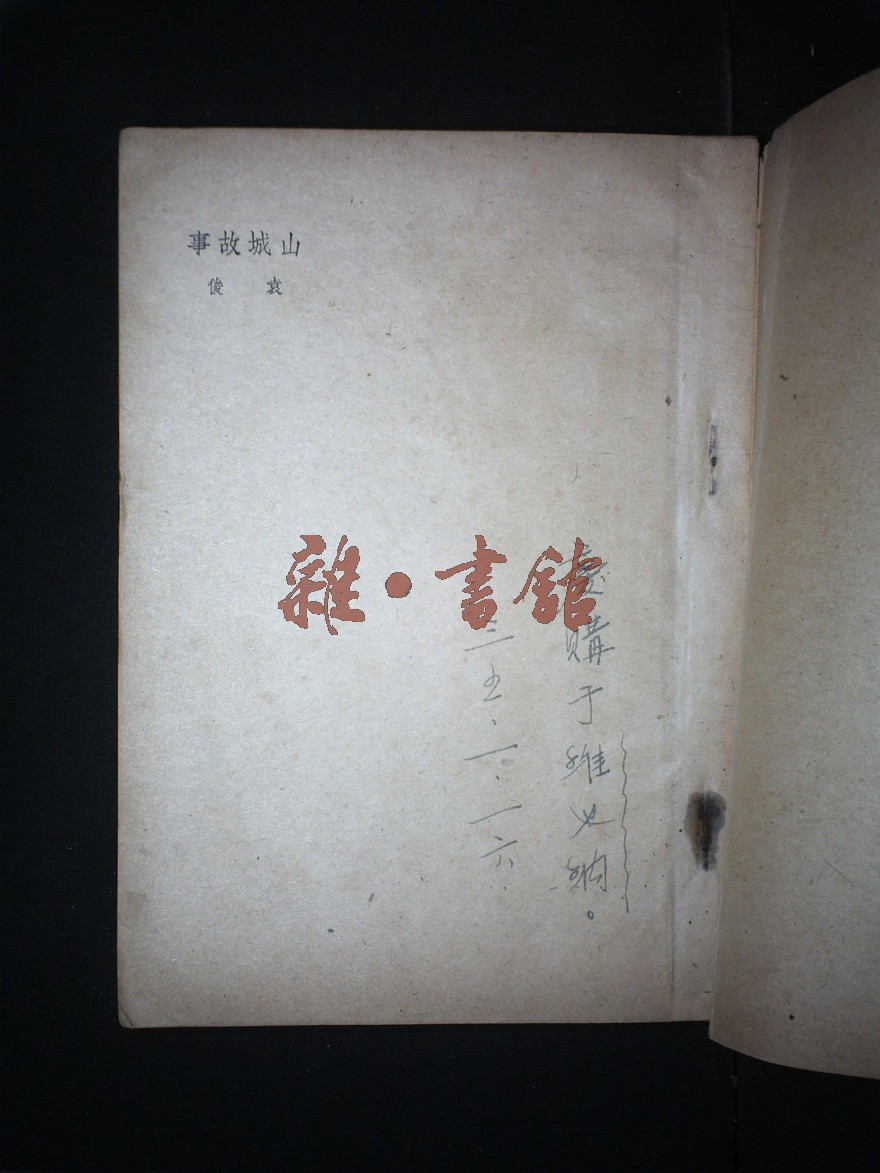 山城故事
袁俊
雜·書館
購于維也納。
三五、一、一六、